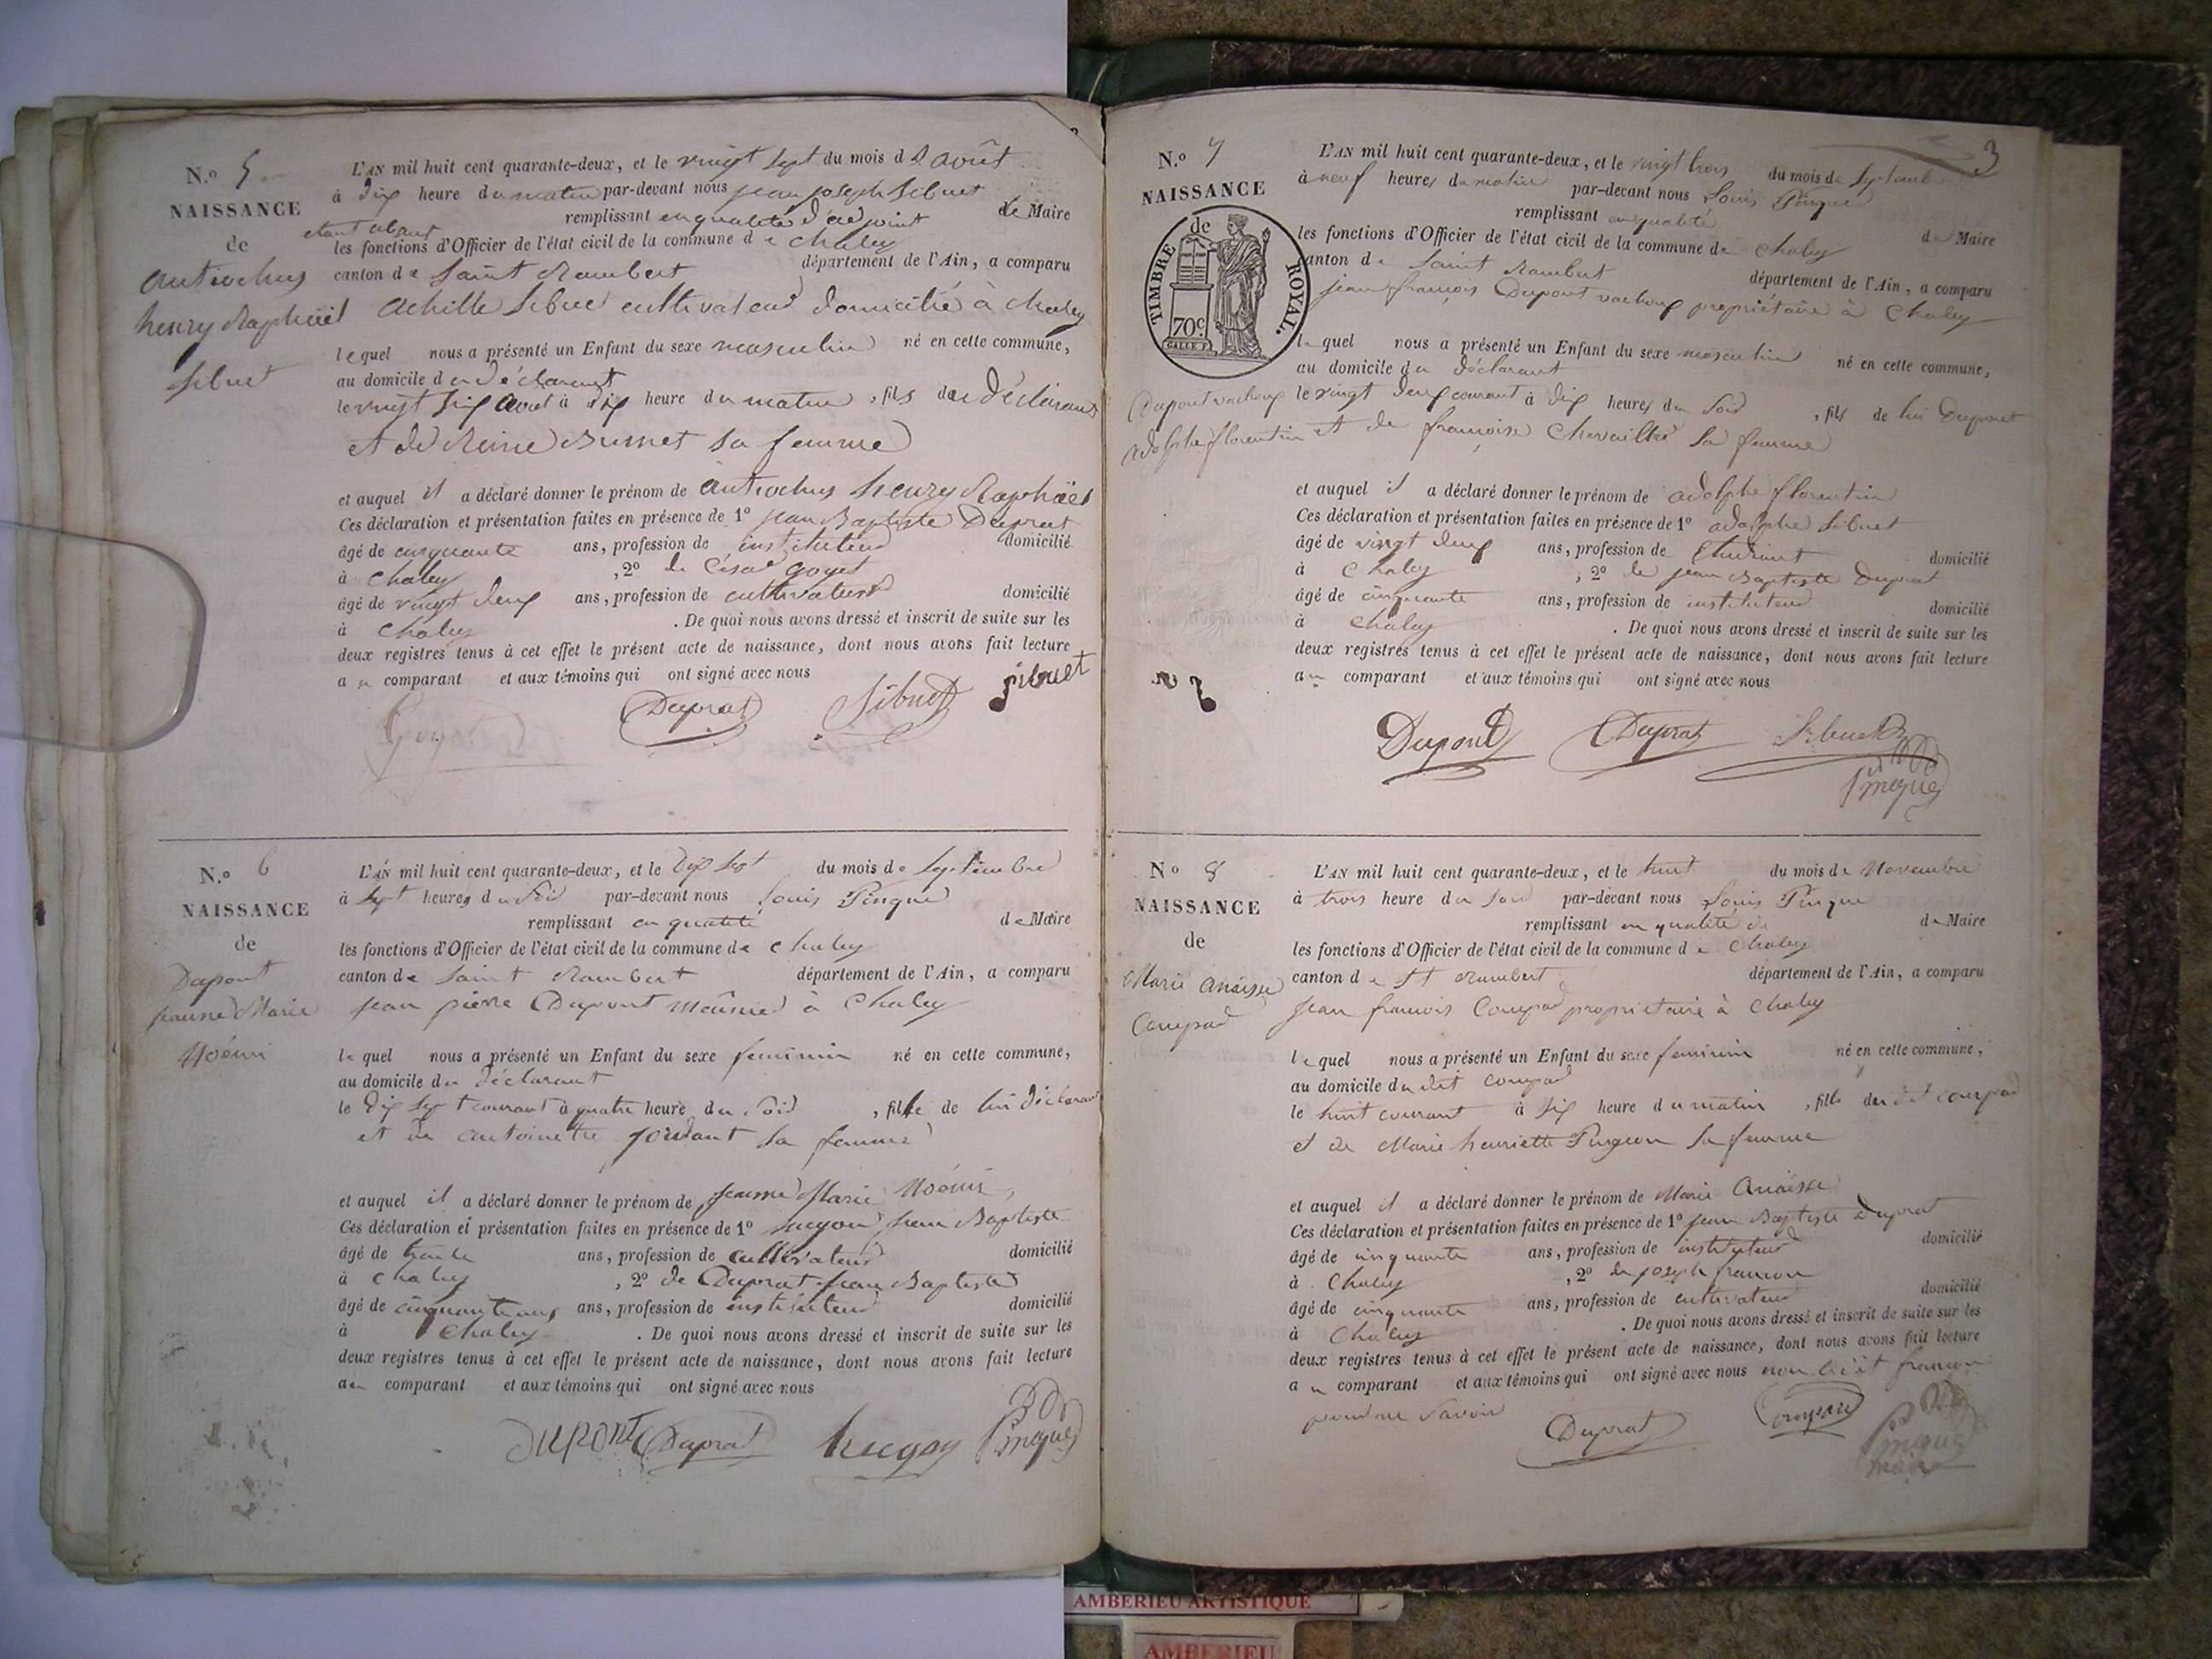 N.o 5
NAISSANCE
de
antiochus
henry Raphaël
Sibuet
L'AN mil huit cent quarante-deux, et le vingt sept du mois d'août
à dix heure du matin par-devant nous jean joseph Sibuet
remplissant en qualité d'adjoint de Maire
étant absent les fonctions d'Officier de l'état civil de la commune de chaley
canton de Saint Rambert département de l'Ain, a comparu
Achille Sibuet cultivateur domicilié à chaley
lequel nous a présenté un Enfant du sexe masculin né en cette commune,
au domicile du déclarant
le vingt six août à dix heure du matin, fils du déclarant
et de Reine Brunet sa femme
et auquel il a déclaré donner le prénom de antiochus henry Raphaël
Ces déclaration et présentation faites en présence de 1o jean Baptiste Duprat
âgé de cinquante ans, profession de instituteur domicilié
à chaley, 2o de César goyet
âgé de vingt deux ans, profession de cultivateur domicilié
à chaley. De quoi nous avons dressé et inscrit de suite sur les
deux registres tenus à cet effet le présent acte de naissance, dont nous avons fait lecture
au comparant et aux témoins qui ont signé avec nous
Duprat Sibuet Sibuet
N.o 6
NAISSANCE
de
Dupont
jeanne Marie
Noémi
L'AN mil huit cent quarante-deux, et le dix sept du mois de Septembre
à sept heures du soir par-devant nous Louis Pingue
remplissant en qualité de Maire
les fonctions d'Officier de l'état civil de la commune de chaley
canton de Saint Rambert département de l'Ain, a comparu
jean pierre Dupont meûnier à Chaley
lequel nous a présenté un Enfant du sexe feminin né en cette commune,
au domicile du déclarant
le dix sept courant à quatre heure du soir, fille de lui déclarant
et de antoinette jordant sa femme
et auquel il a déclaré donner le prénom de jeanne Marie Noémi
Ces déclaration et présentation faites en présence de 1o hugon jean Baptiste
âgé de trente ans, profession de cultivateur domicilié
à chaley, 2o de Duprat jean Baptiste
âgé de cinquante ans ans, profession de instituteur domicilié
à Chaley. De quoi nous avons dressé et inscrit de suite sur les
deux registres tenus à cet effet le présent acte de naissance, dont nous avons fait lecture
au comparant et aux témoins qui ont signé avec nous
DUPONT Duprat hugon Pingue
3
N.o 7
NAISSANCE
de
TIMBRE ROYAL.
70c.
Dupont vachoux
adolphe florentin
L'AN mil huit cent quarante-deux, et le vingt trois du mois de Septembre
à neuf heures du matin par-devant nous Louis Pingue
remplissant en qualité de Maire
les fonctions d'Officier de l'état civil de la commune de Chaley
canton de Saint Rambert département de l'Ain, a comparu
jean françois Dupont vachoux propriétaire à Chaley
lequel nous a présenté un Enfant du sexe masculin né en cette commune,
au domicile du déclarant
le vingt deux courant à dix heures du soir, fils de lui Dupont
et de françoise Chevaillié sa femme
et auquel il a déclaré donner le prénom de adolphe florentin
Ces déclaration et présentation faites en présence de 1o adolphe Sibuet
âgé de vingt deux ans, profession de Etudiant domicilié
à Chaley, 2o de jean Baptiste Duprat
âgé de cinquante ans, profession de instituteur domicilié
à Chaley. De quoi nous avons dressé et inscrit de suite sur les
deux registres tenus à cet effet le présent acte de naissance, dont nous avons fait lecture
au comparant et aux témoins qui ont signé avec nous
Dupont Duprat Sibuet
Pingue
No 8
NAISSANCE
de
Marie Anaïsse
Compad
L'AN mil huit cent quarante-deux, et le huit du mois de Novembre
à trois heure du soir par-devant nous Louis Pingue
remplissant en qualité de de Maire
les fonctions d'Officier de l'état civil de la commune de Chaley
canton de St Rambert département de l'Ain, a comparu
jean francois Compad propriétaire à Chaley
lequel nous a présenté un Enfant du sexe feminin né en cette commune,
au domicile du dit Compad
le huit courant à six heure du matin, fille du dit compad
et de Marie henriette Pingeon sa femme
et auquel il a déclaré donner le prénom de Marie Anaïsse
Ces déclaration et présentation faites en présence de 1o jean Baptiste Duprat
âgé de cinquante ans, profession de instituteur domicilié
à Chaley, 2o de joseph françon
âgé de cinquante ans, profession de cultivateur domicilié
à Chaley. De quoi nous avons dressé et inscrit de suite sur les
deux registres tenus à cet effet le présent acte de naissance, dont nous avons fait lecture
au comparant et aux témoins qui ont signé avec nous non ledit françon
pour ne savoir
Duprat Compad Pingue
maire
AMBERIEU ARTISTIQUE
AMBERIEU